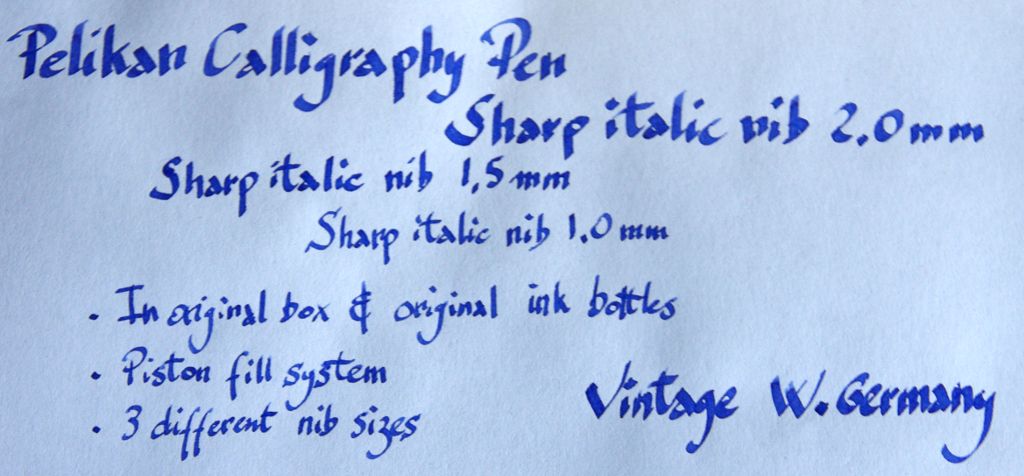 Pelikan Calligraphy Pen
Sharp italic nib 2.0 mm
Sharp italic nib 1,5 mm
Sharp italic nib 1.0 mm
• In original box & original ink bottles
• Piston fill system
• 3 different nib sizes
Vintage W. Germany